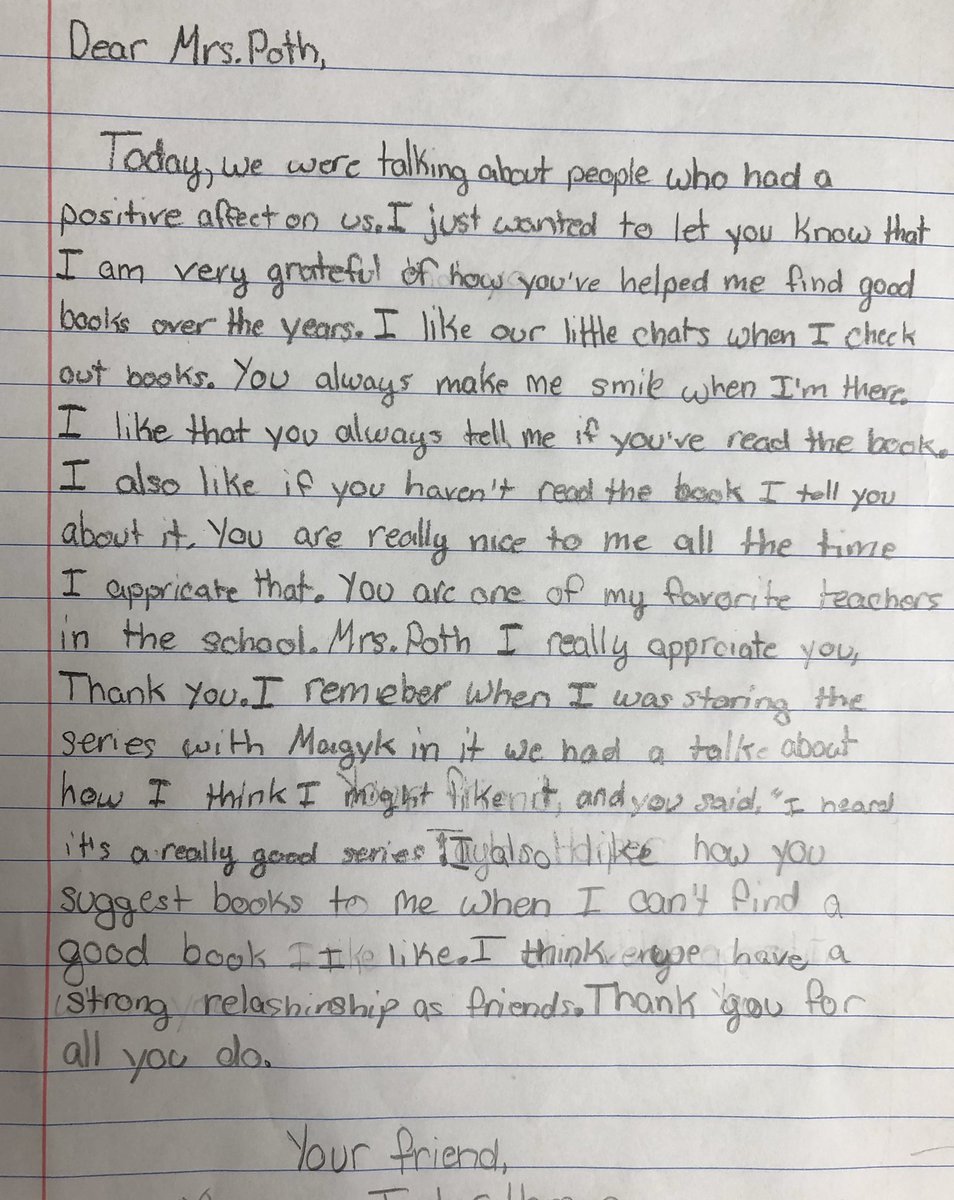 Dear Mrs. Poth,
Today, we were talking about people who had a
positive affect on us. I just wanted to let you know that
I am very grateful of how you've helped me find good
books over the years. I like our little chats when I check
out books. You always make me smile when I'm there.
I like that you always tell me if you've read the book.
I also like if you haven't read the book I tell you
about it. You are really nice to me all the time
I appricate that. You are one of my favorite teachers
in the school. Mrs. Poth I really apprciate you,
Thank you. I remeber when I was staring the
series with Magyk in it we had a talk about
how I think I might like it, and you said, "I heard
it's a really good series I also like how you
suggest books to me when I can't find a
good book I like. I think we have a
strong relashinship as friends. Thank you for
all you do.
Your friend,